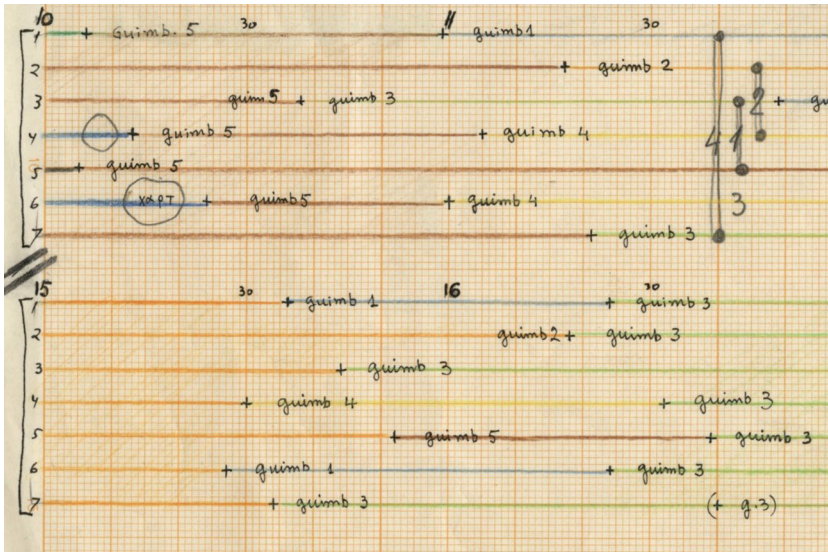 10 30 11 30
1 + Guimb. 5 + guimb 1
2 + guimb 2
3 guim 5 + guimb 3 2 +
4 + guimb 5 + guimb 4 4 1
5 + guimb 5
6 ΧΑΡΤ + guimb 5 + guimb 4 3
7 + guimb 3
15 30 16 30
1 + guimb 1 + guimb 3
2 guimb 2 + guimb 3
3 + guimb 3
4 + guimb 4 + guimb 3
5 + guimb 5 + guimb 3
6 + guimb 1 + guimb 3
7 + guimb 3 (+ g.3)